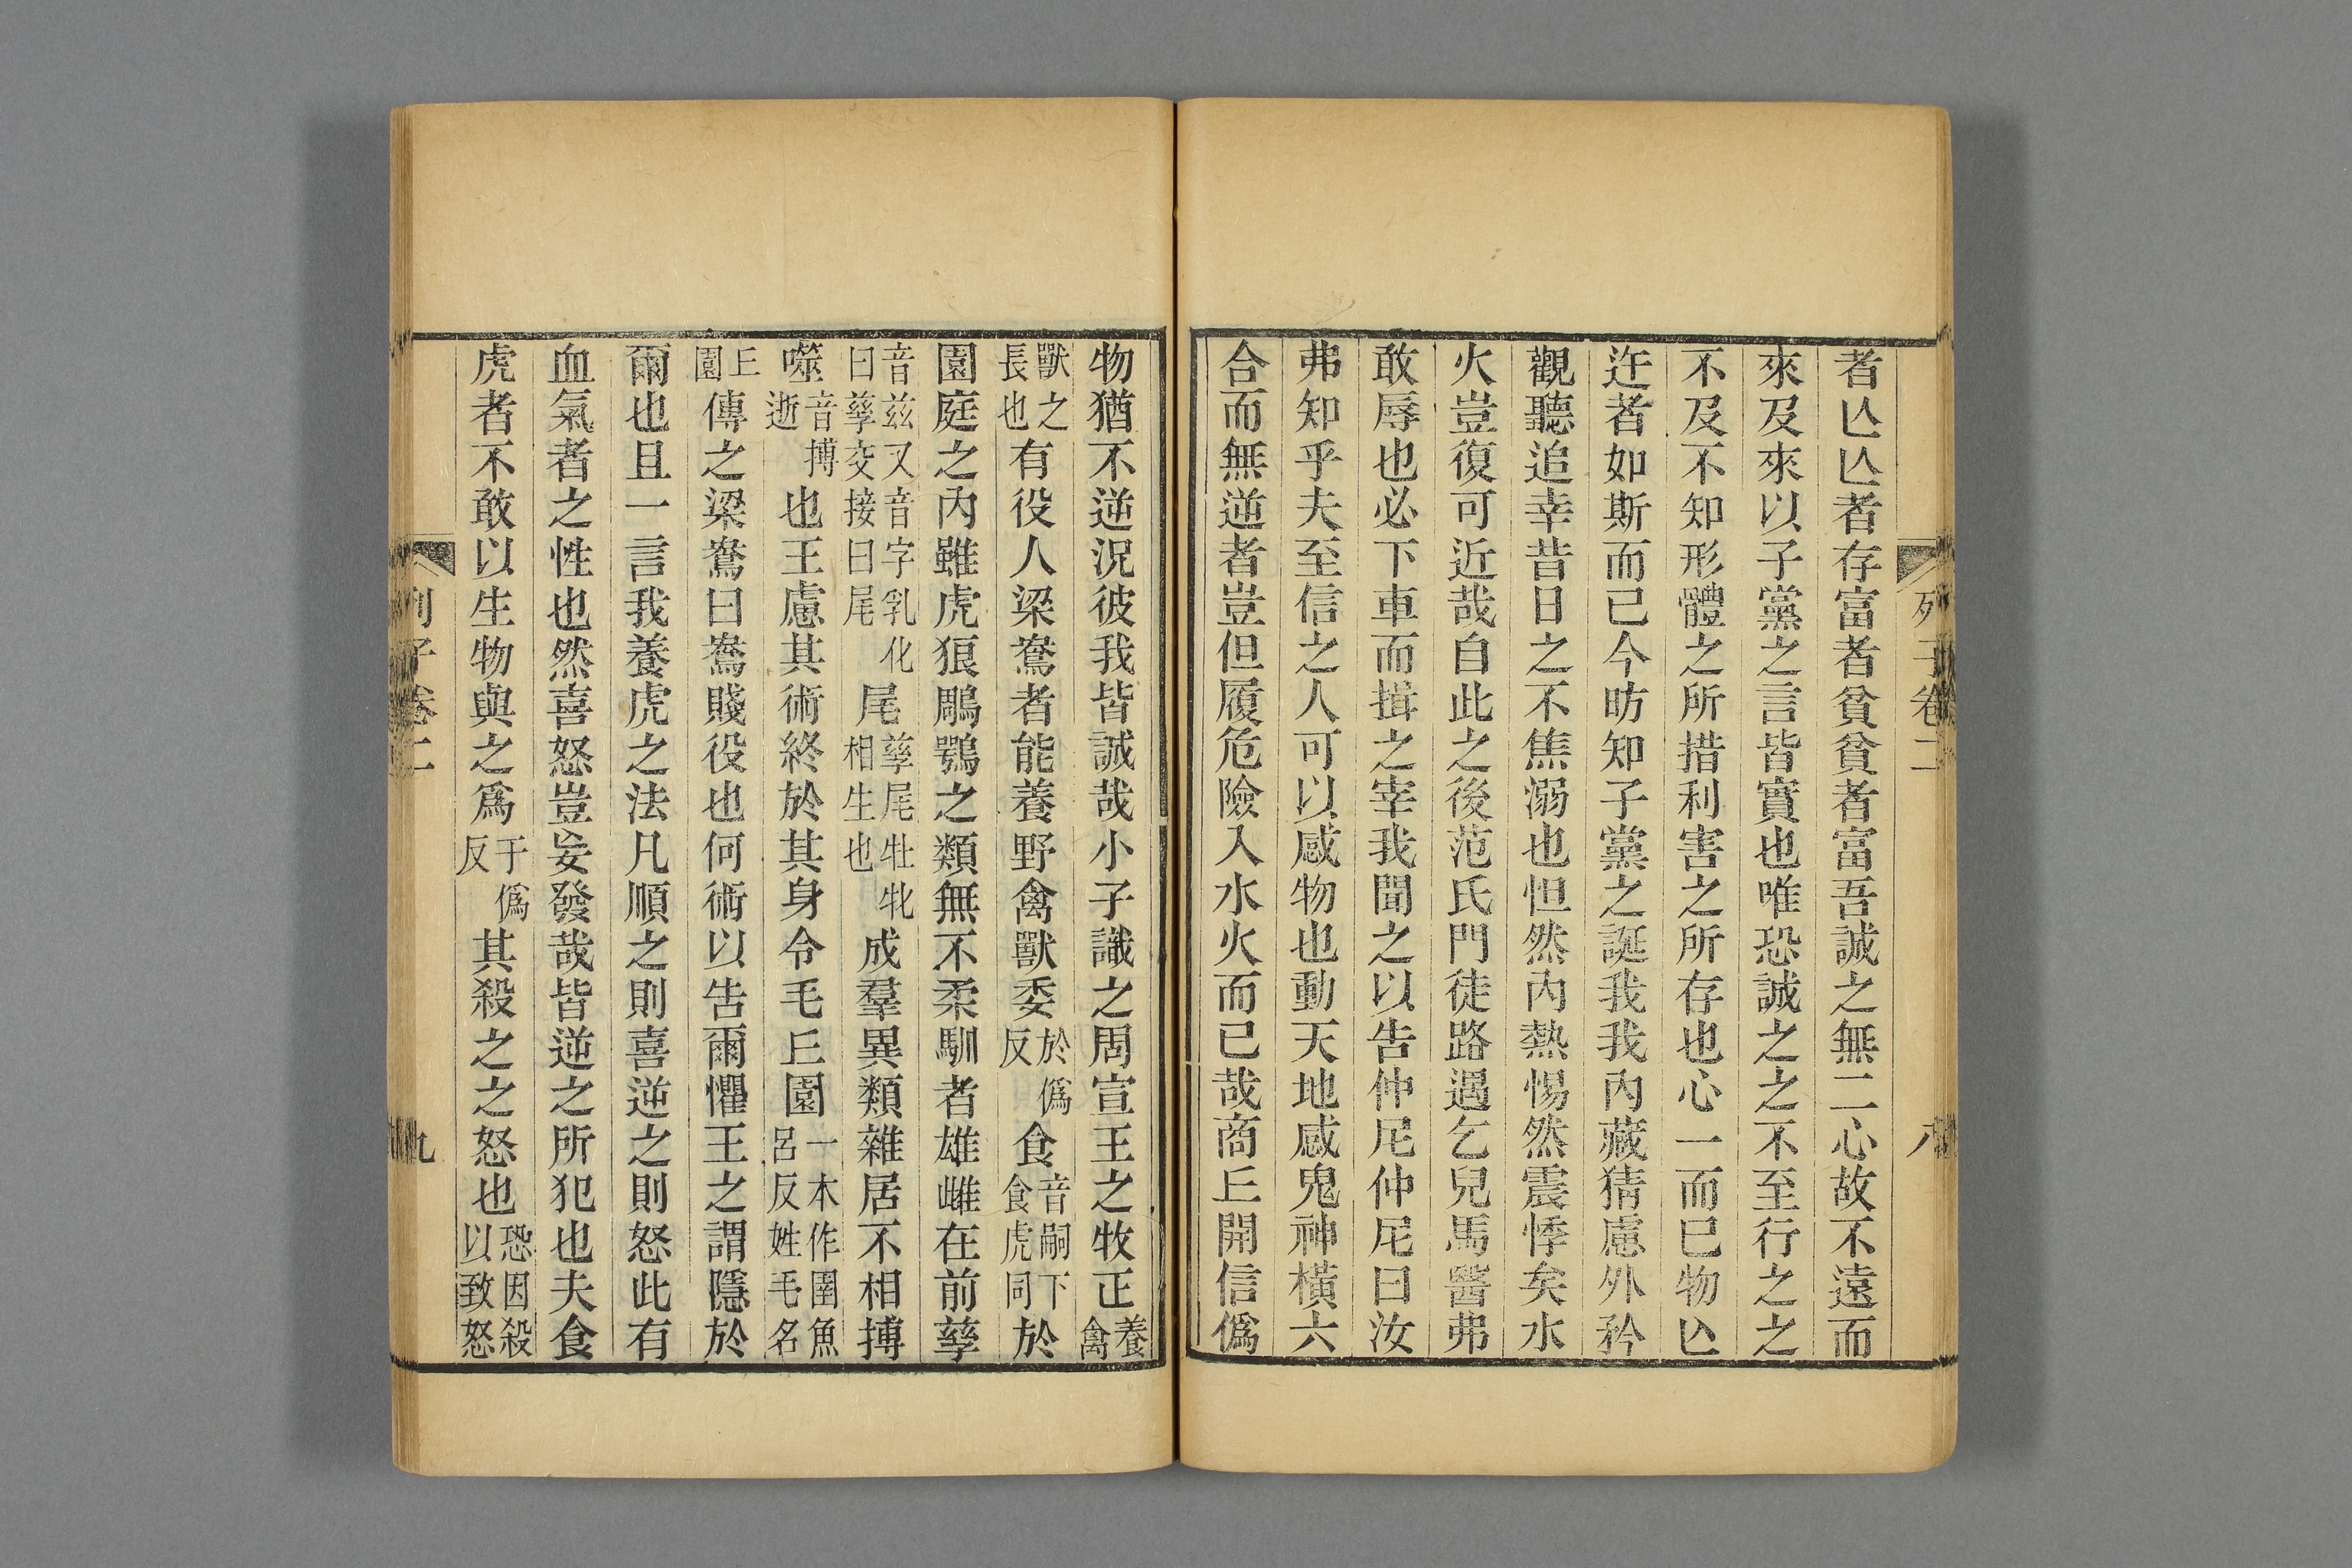 列子卷二 八
者亾亾者存富者貧貧者富吾誠之無二心故不遠而
來及來以子黨之言皆實也唯恐誠之之不至行之之
不及不知形體之所措利害之所存也心一而已物亾
迕者如斯而已今昉知子黨之誕我我內藏猜慮外矜
觀聽追幸昔日之不焦溺也怛然內熱惕然震悸矣水
火豈復可近哉自此之後范氏門徒路遇乞兒馬醫弗
敢辱也必下車而揖之宰我聞之以告仲尼仲尼曰汝
弗知乎夫至信之人可以感物也動天地感鬼神橫六
合而無逆者豈但履危險入水火而已哉商丘開信僞
物猶不逆況彼我皆誠哉小子識之周宣王之牧正養禽
獸之長也有役人梁鴦者能養野禽獸委於僞反食音嗣下食虎同於
園庭之內雖虎狼鵰鶚之類無不柔馴者雄雌在前孳
音兹又音字乳化曰孳交接曰尾尾孳尾牡牝相生也成羣異類雜居不相搏
噬音搏逝也王慮其術終於其身令毛丘園一本作圉魚呂反姓毛名
丘園傳之梁鴦曰鴦賤役也何術以告爾懼王之謂隱於
爾也且一言我養虎之法凡順之則喜逆之則怒此有
血氣者之性也然喜怒豈妄發哉皆逆之所犯也夫食
虎者不敢以生物與之爲于僞反其殺之之怒也恐因殺以致怒
列子卷二 九